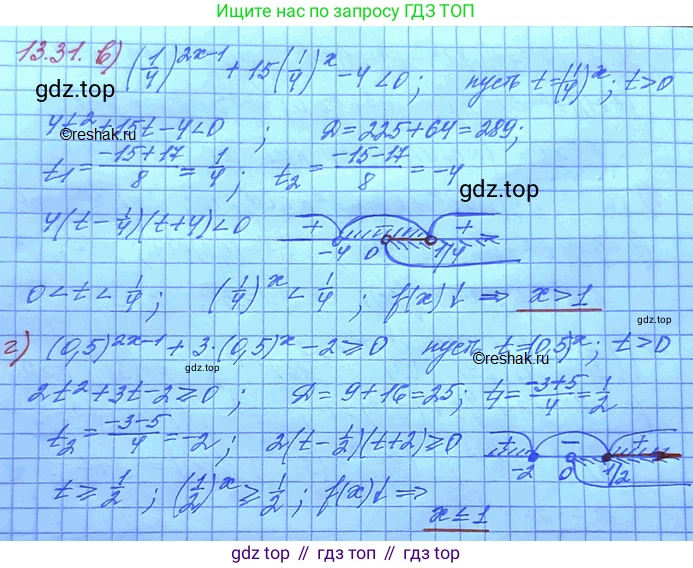 Ищите нас в поиске по запросу ГДЗ ТОП
13.31. в) (1/4)^(2x-1) + 15(1/4)^x - 4 < 0; пусть t = (1/4)^x; t > 0
gdz.top
4t² + 15t - 4 < 0; D = 225 + 64 = 289;
©reshak.ru
t₁ = (-15+17)/8 = 1/4; t₂ = (-15-17)/8 = -4
gdz.top
4(t - 1/4)(t + 4) < 0 + - + -4 0 1/4
0 < t < 1/4; (1/4)^x < 1/4; f(x)↓ ⇒ x > 1
gdz.top
г) (0,5)^(2x-1) + 3·(0,5)^x - 2 ≥ 0 пусть t = (0,5)^x; t > 0
©reshak.ru
2t² + 3t - 2 ≥ 0; D = 9 + 16 = 25; t₁ = (-3+5)/4 = 1/2
t₂ = (-3-5)/4 = -2; 2(t - 1/2)(t + 2) ≥ 0 + - + -2 0 1/2
t ≥ 1/2; (1/2)^x ≥ 1/2; f(x)↓ ⇒
x ≤ 1
gdz.top // гдз.топ // gdz.top